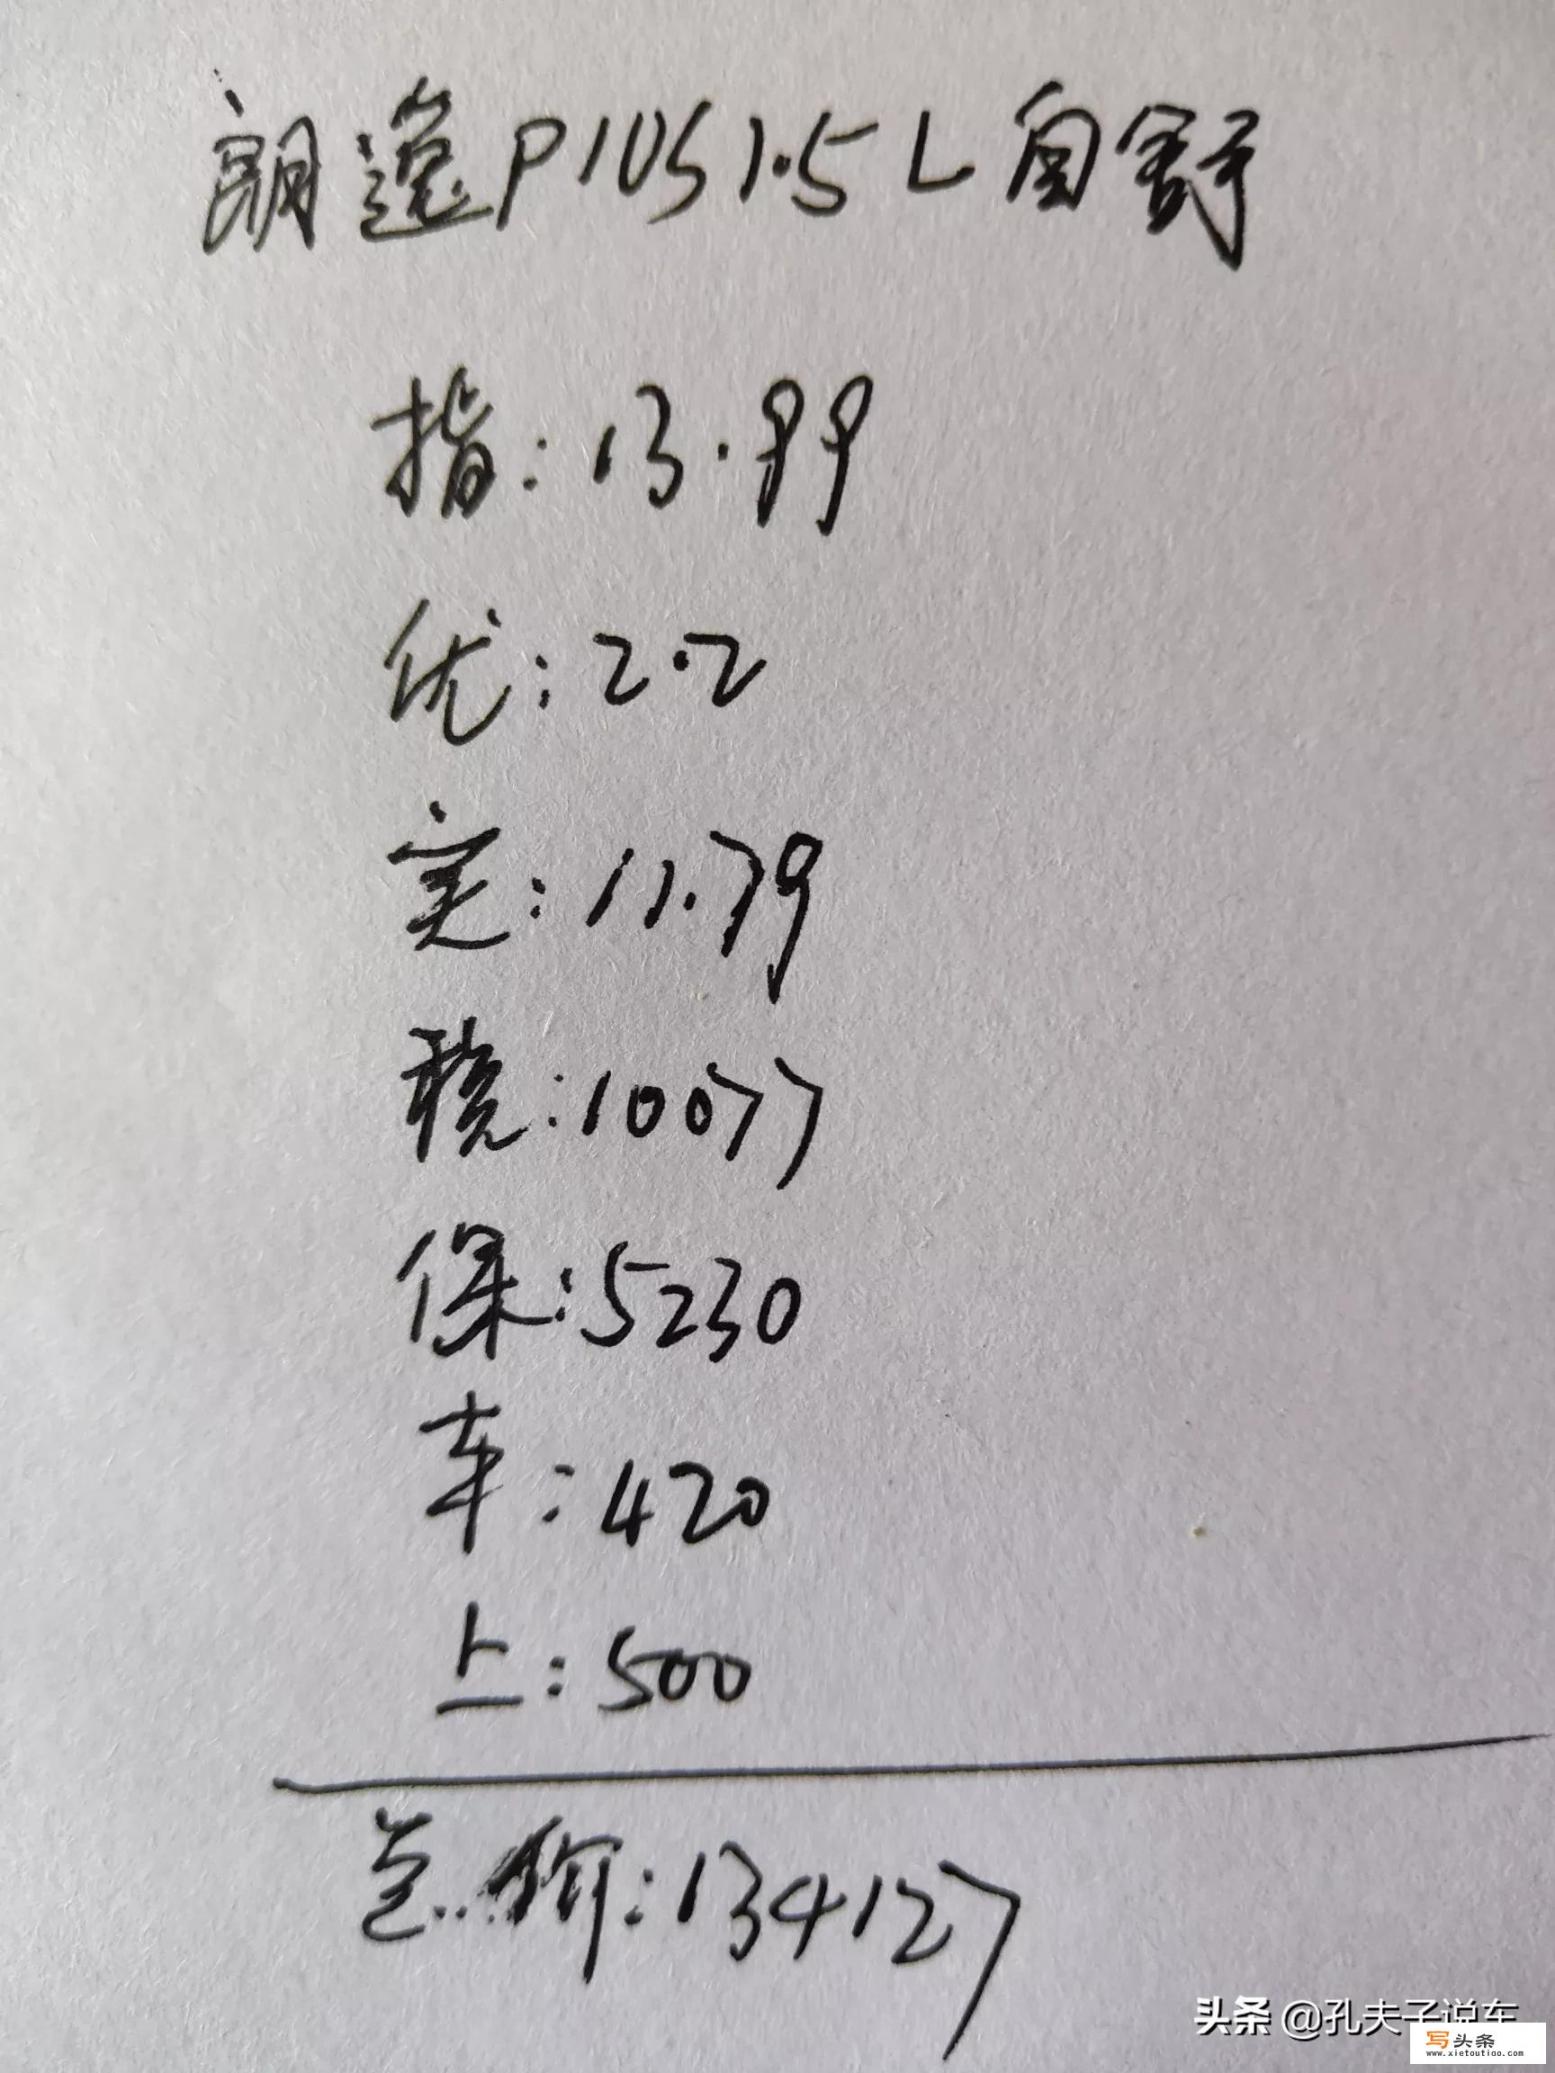 朗逸Plus1.5L自舒
指:13.99
优:2.2
实:11.79
税:10077
保:5230
车:420
上:500
总价:134127
头条 @孔夫子说车
写头条
www.xietoutiao.com